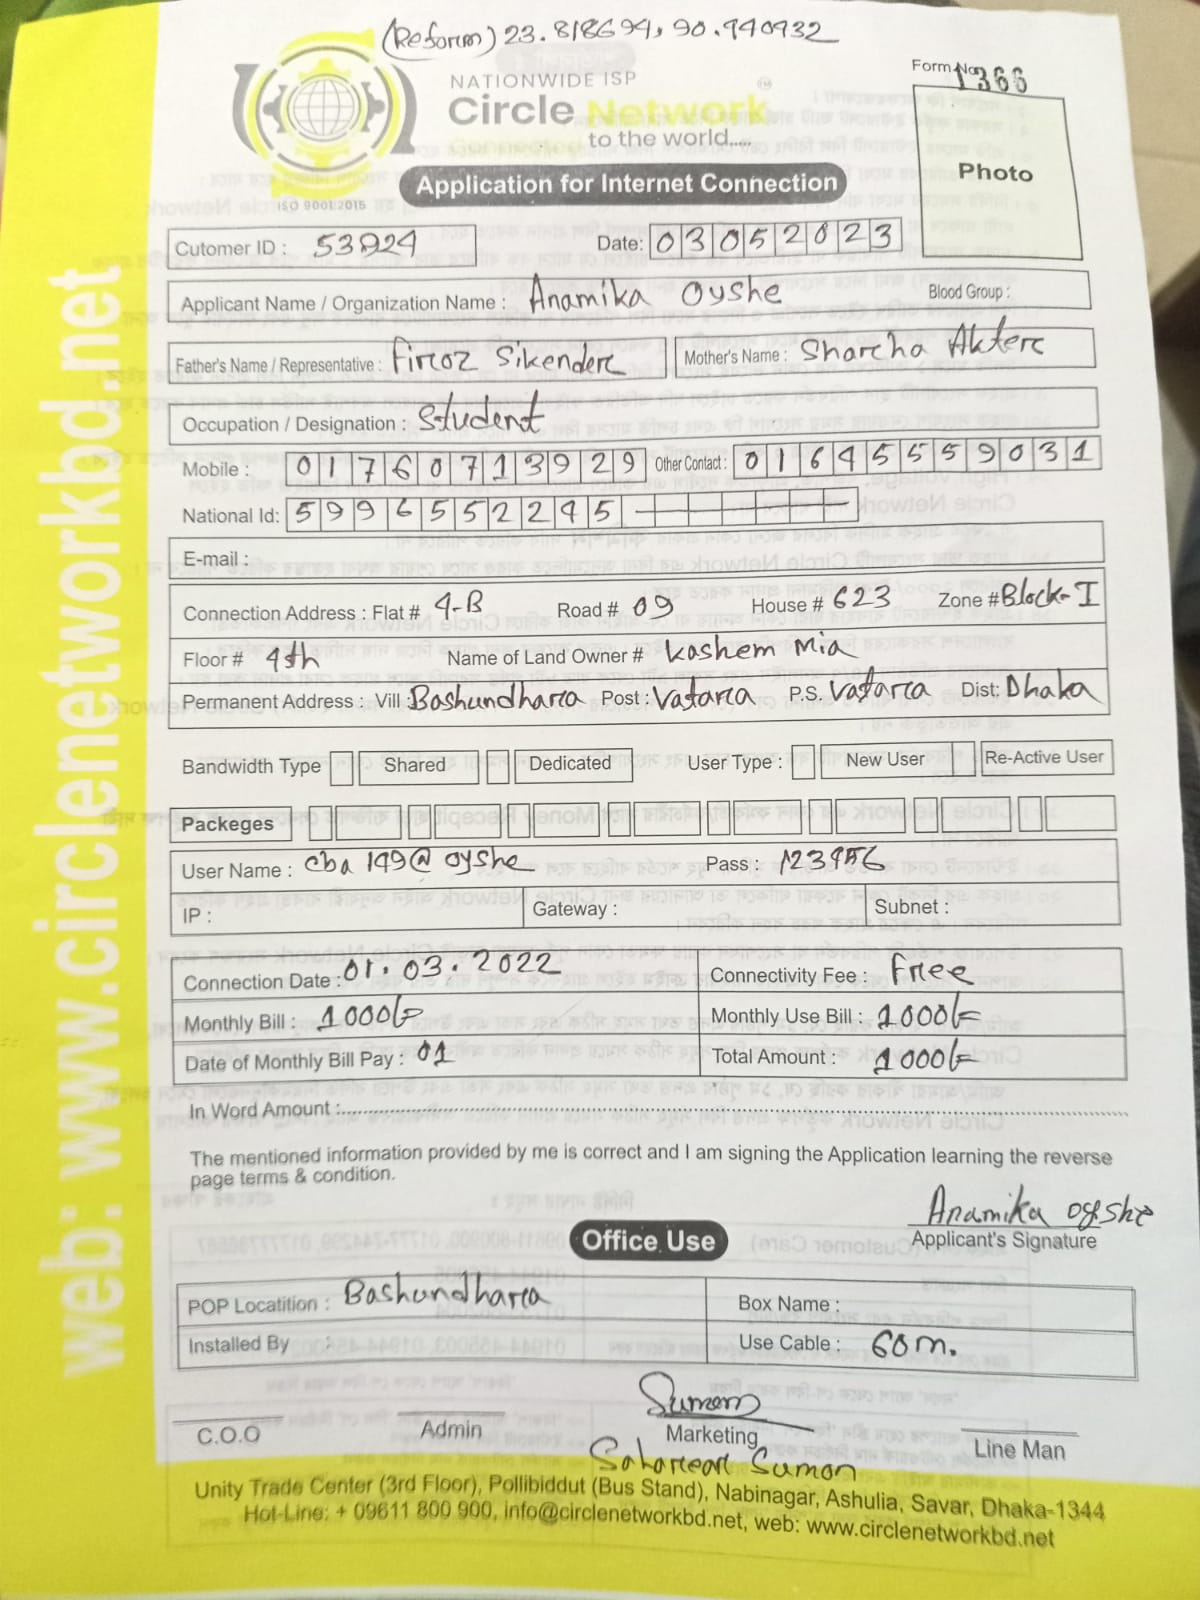 (Reform) 23.818694, 90.440432
Form No. 1366
NATIONWIDE ISP
Circle Network
to the world.....
ISO 9001:2015
Application for Internet Connection
Photo
Cutomer ID : 53824 Date: 03052023
Applicant Name / Organization Name : Anamika Oyshe Blood Group :
Father's Name / Representative : Firoz Sikender Mother's Name : Sharcha Akter
Occupation / Designation : Student
Mobile : 01760713929 Other Contact : 01645559031
National Id: 5996552245
E-mail :
Connection Address : Flat # 4-B Road # 09 House # 623 Zone # Block-I
Floor # 4th Name of Land Owner # Kashem Mia
Permanent Address : Vill : Bashundhara Post : Vatara P.S. Vatara Dist: Dhaka
Bandwidth Type Shared Dedicated User Type : New User Re-Active User
Packeges
User Name : cba 149@ oyshe Pass : 123456
IP : Gateway : Subnet :
Connection Date : 01.03.2022 Connectivity Fee : Free
Monthly Bill : 1000/= Monthly Use Bill : 1000/=
Date of Monthly Bill Pay : 01 Total Amount : 1000/=
In Word Amount :
The mentioned information provided by me is correct and I am signing the Application learning the reverse
page terms & condition.
Anamika oyshe
Applicant's Signature
Office Use
POP Locatition : Bashundhara Box Name :
Installed By : Use Cable : 60m.
Sumon
C.O.O Admin Marketing Line Man
Suman
Unity Trade Center (3rd Floor), Pollibiddut (Bus Stand), Nabinagar, Ashulia, Savar, Dhaka-1344
Hot-Line: + 09611 800 900, info@circlenetworkbd.net, web: www.circlenetworkbd.net
web: www.circlenetworkbd.net